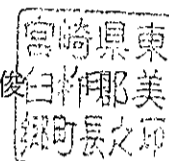 宮崎県東
俊
臼杵郡美
郷町長之印